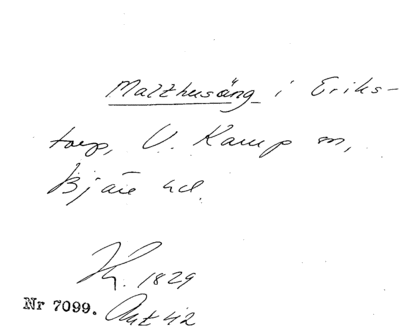 Malthusäng i Eriks-
torp, V. Karup sn,
Bjäre hd.
1829
Nr 7099. Akt 42